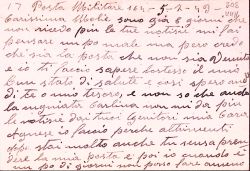 17 Posta Militare 164 - 5-2-42
Carissima Moglie, sono già 8 giorni che
non ricevo più le tue notizie mi fai
pensare un po male ma però credo
che sia la posta che non sia
io ti faccio sapere lo stesso il mio
buon stato di salute e così spero anche
di te o mio tesoro, e non so che anche
la cartolina non mi da più
le notizie dai tuoi Genitori mia Cara
Agnese io faccio perche altrimenti
oggi stai molto anche tu senza pren
dere la mia posta e poi io quando è
un po di giorni non posso fare ammeno